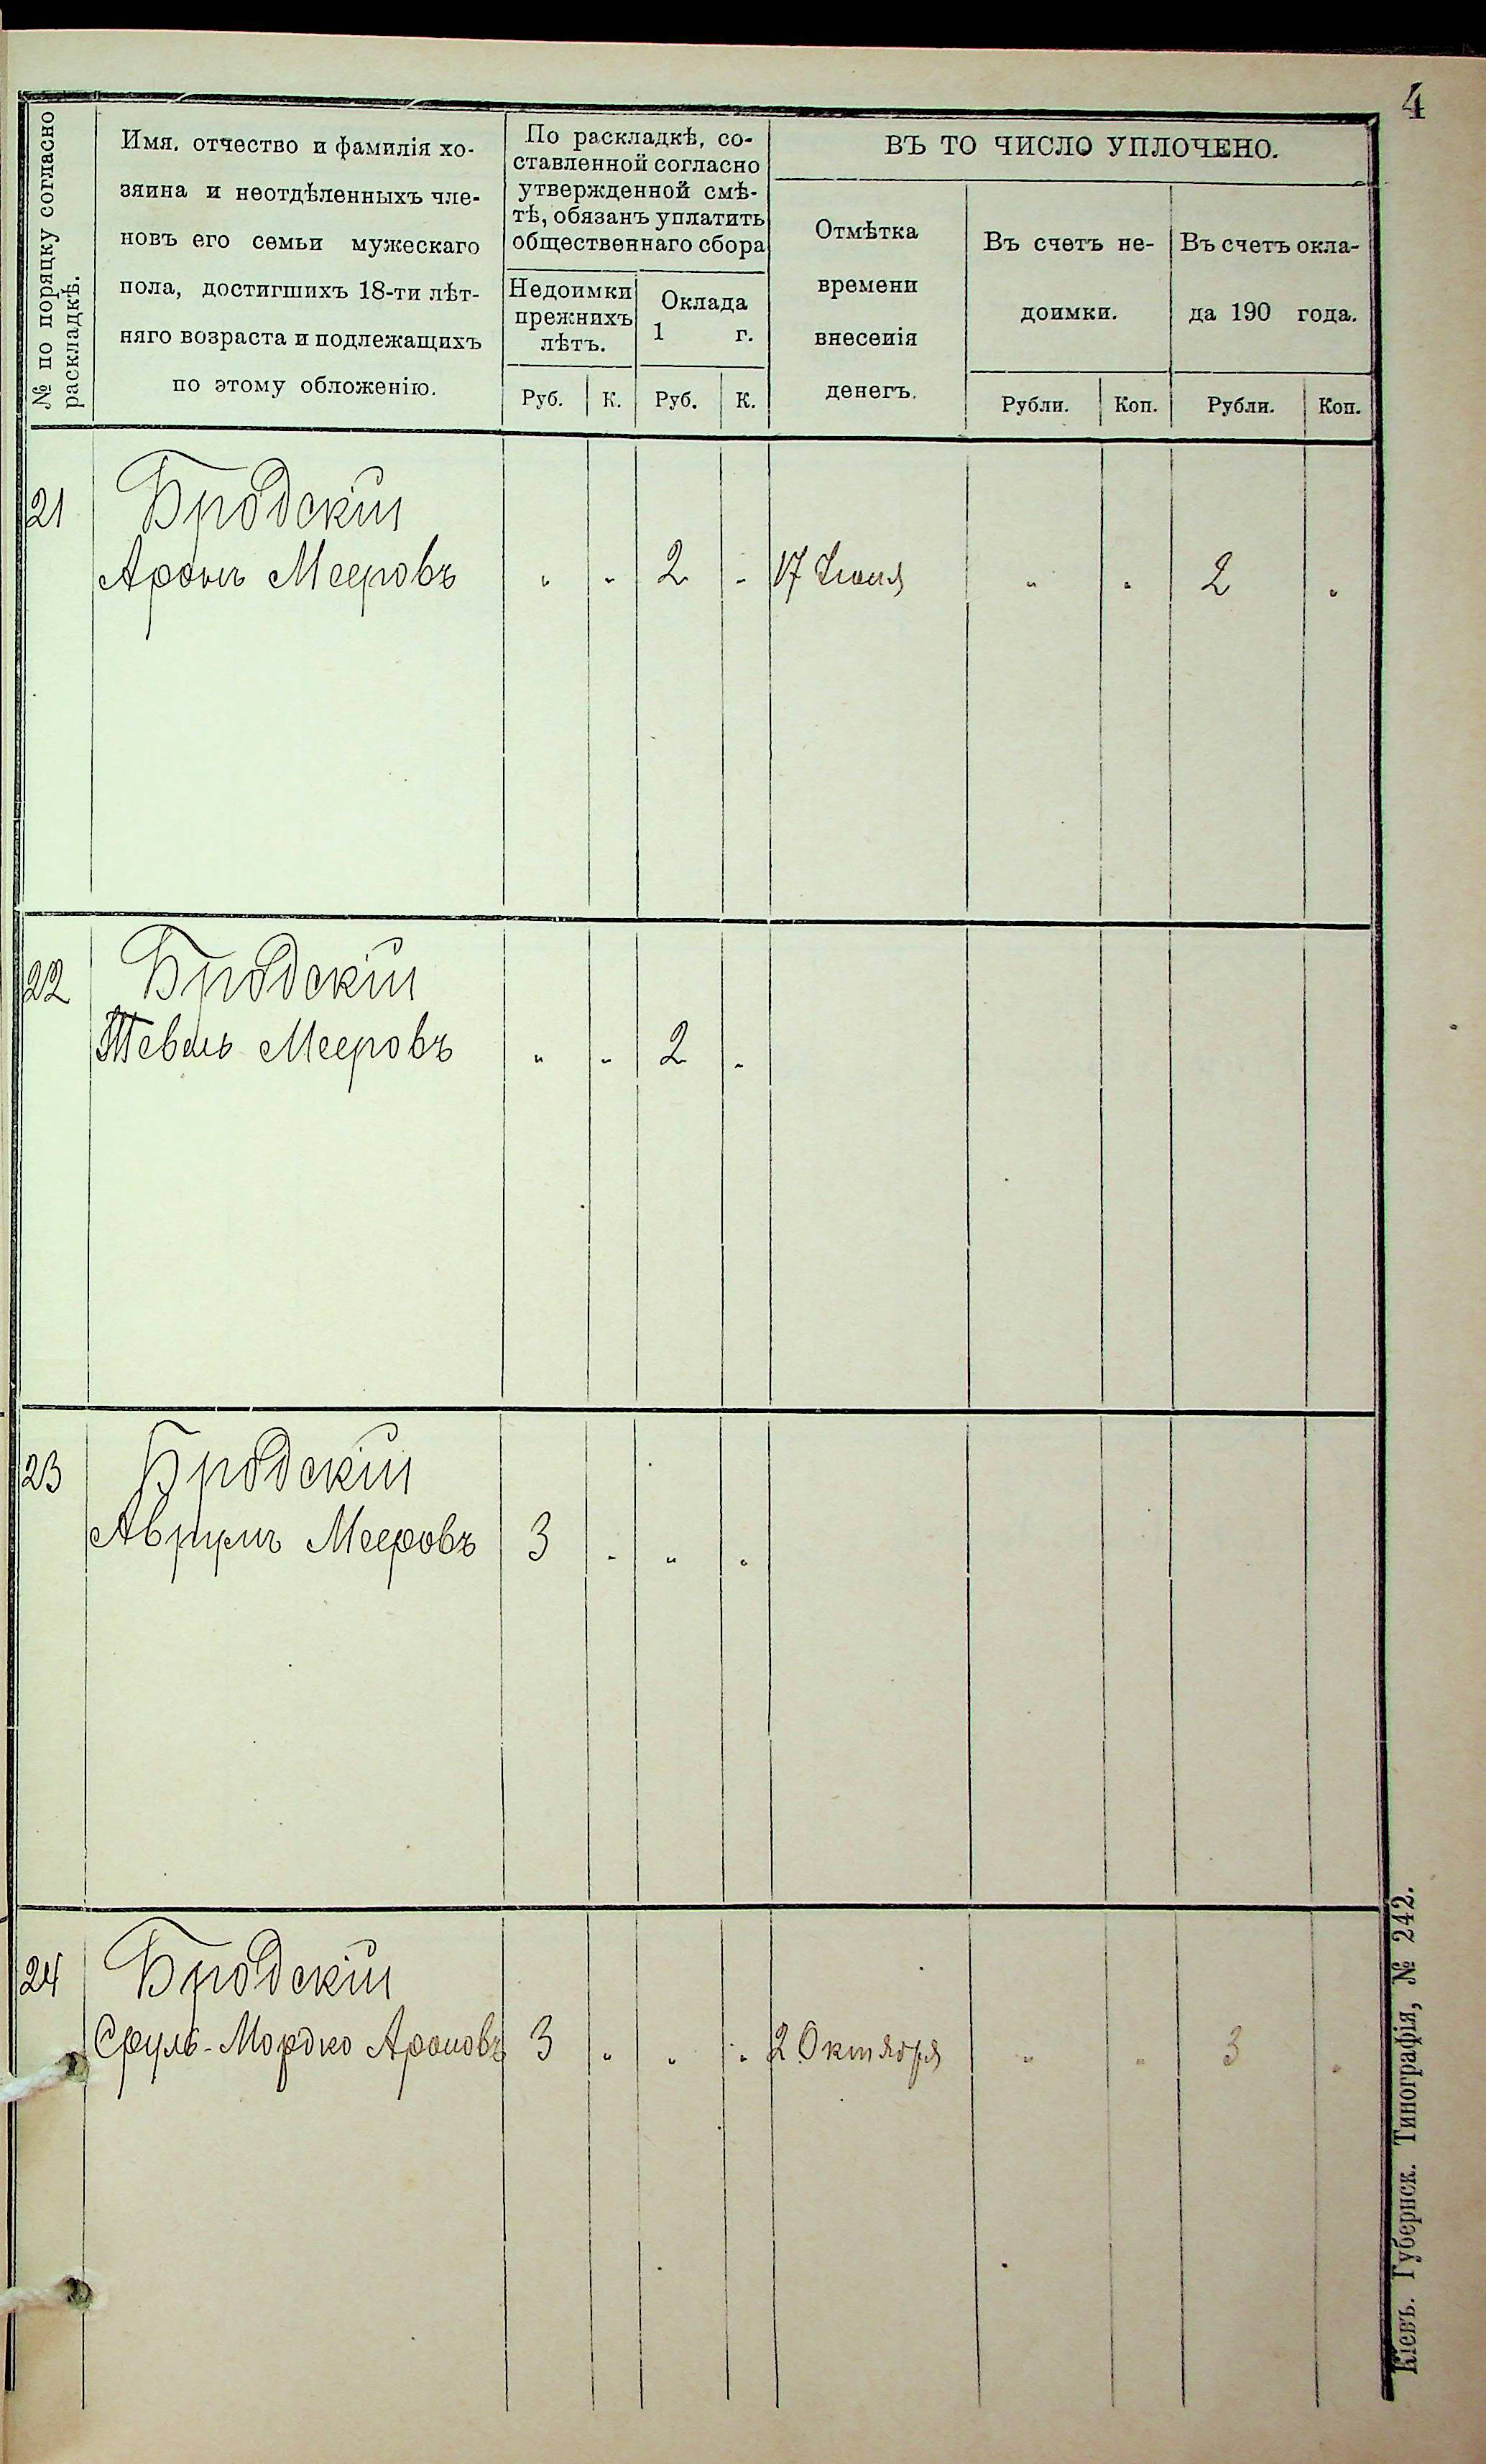 4
№ по поряцку согласно
раскладкѣ.
Имя. отчество и фамилія хо-
зяина и неотдѣленныхъ чле-
новъ его семьи мужескаго
пола, достигшихъ 18-ти лѣт-
няго возраста и подлежащихъ
по этому обложенію.
По раскладкѣ, со-
ставленной согласно
утвержденной смѣ-
тѣ, обязанъ уплатить
общественнаго сбора
Недоимки
прежнихъ
лѣтъ.
Оклада
1 г.
Руб. К. Руб. К.
ВЪ ТО ЧИСЛО УПЛОЧЕНО.
Отмѣтка
времени
внесенія
денегъ.
Въ счетъ не-
доимки.
Въ счетъ окла-
да 190 года.
Рубли. Коп. Рубли. Коп.
21 Бродскій
Аронъ Мееровъ " " 2 " 17 Іюня " " 2 "
22 Бродскій
Тевель Мееровъ " " 2 "
23 Бродскій
Аврумъ Мееровъ 3 " " "
24 Бродскій
Сруль-Мордко Ароновъ 3 " " " 2 Октября " " 3 "
Кіевъ. Губернск. Типографія, № 242.